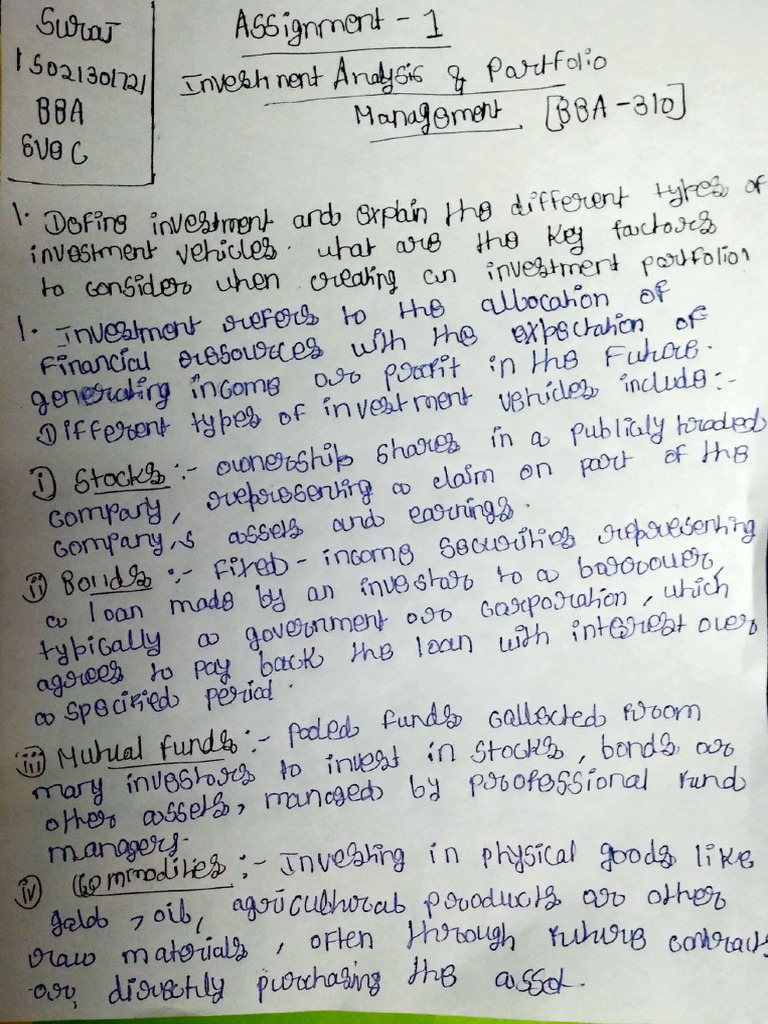 Suraj
15021301721
BBA
SVGC
Assignment - 1
Investment Analysis & Portfolio
Management [BBA-310]
1. Define investment and explain the different types of
investment vehicles. what are the key factors
to consider when creating an investment portfolio?
1. Investment refers to the allocation of
financial resources with the expectation of
generating income or profit in the future.
Different types of investment vehicles include :-
i) Stocks :- ownership shares in a publicly traded
company, representing a claim on part of the
company,s assets and earnings.
ii) Bonds :- fixed - income securities representing
a loan made by an investor to a borrower,
typically a government or corporation, which
agrees to pay back the loan with interest over
a specified period.
iii) Mutual funds :- Pooled funds collected from
many investors to invest in stocks, bonds or
other assets, managed by professional fund
managers.
iv) Commodities :- Investing in physical goods like
gold, oil, agricultural products or other
raw materials, often through future contracts
or, directly purchasing the asset.